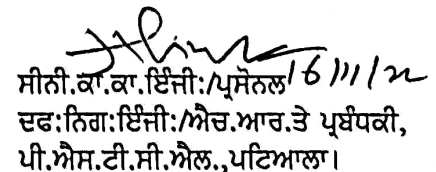 ਸੀਨੀ.ਕਾ.ਕਾ.ਇੰਜੀ:/ਪ੍ਰਸੋਨਲ 16/11/22
ਦਫ:ਨਿਗ:ਇੰਜੀ:/ਐਚ.ਆਰ.ਤੇ ਪ੍ਰਬੰਧਕੀ,
ਪੀ.ਐਸ.ਟੀ.ਸੀ.ਐਲ.,ਪਟਿਆਲਾ।